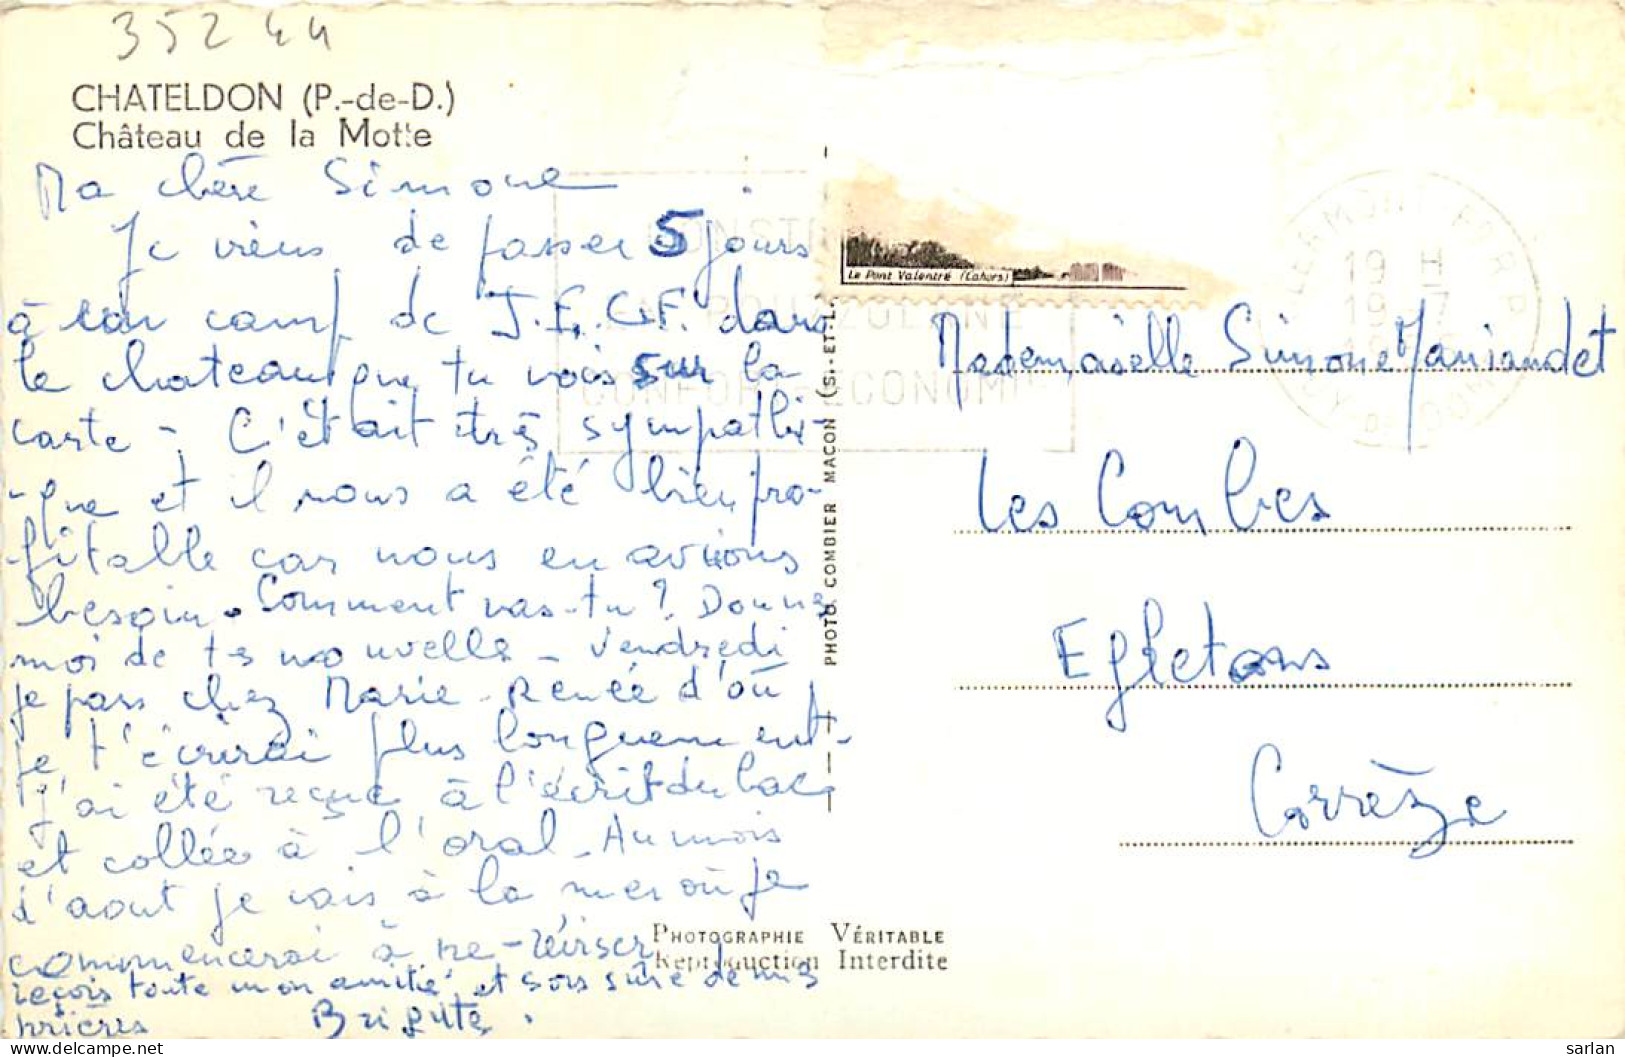 35244
CHATELDON (P.-de-D.)
Château de la Motte
Ma chère Simone
Je viens de passer 5 jours
à un camp de J.E.C.F. dans
le chateau que tu vois sur la
carte - C'était très sympathi-
-que et il nous a été bien pro-
fitable car nous en avions
besoin. Comment vas-tu ? Donne
moi de tes nouvelles - Vendredi
je pars chez Marie-Renée d'où
je t'écrirai plus longuement -
J'ai été reçue à l'écrit du bac
et collée à l'oral - Au mois
d'aout je vais à la mer où je
commencerai à re-réviser
reçois toute mon amitié et sois sûre de mes
prières Brigitte.
PHOTO COMBIER MACON (S.-ET-L.
Le Pont Valentré (Cahors)
CONFORT-ECONOMI
CLERMONT FD R.P
19 H
19 7
PUY DE DOME
Mademoiselle Simone Maniaudet
Les Combes
Egletons
Corrèze
PHOTOGRAPHIE VÉRITABLE
Reproduction Interdite
sarlan